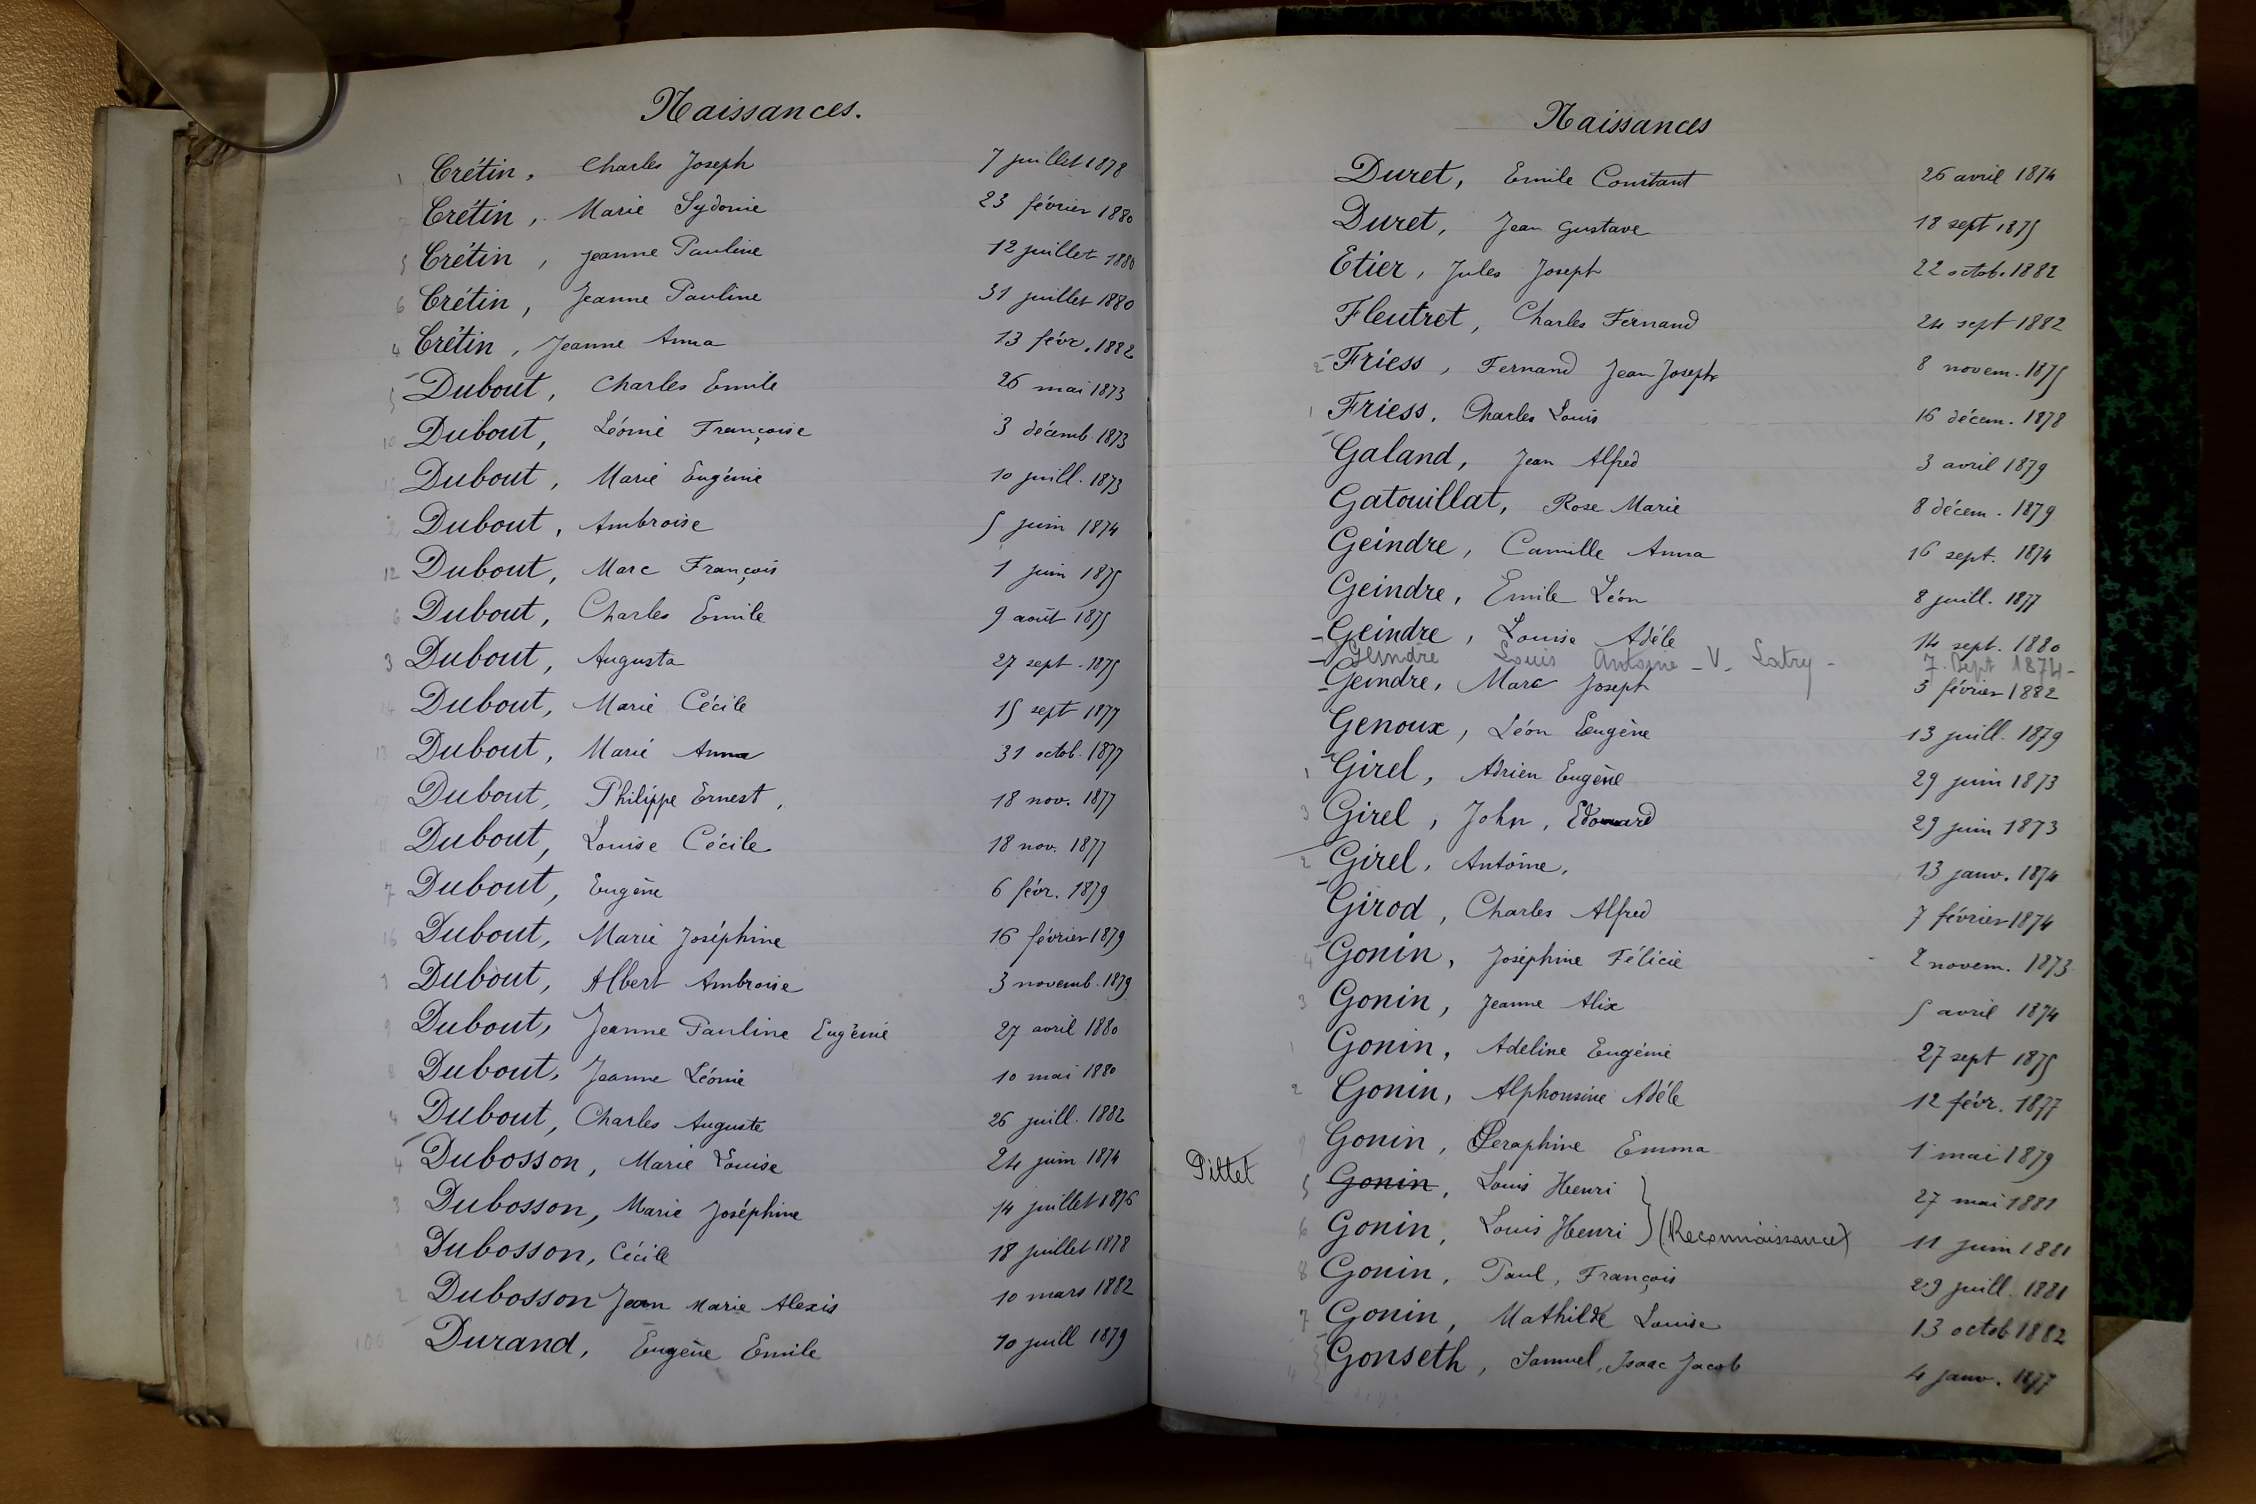 Naissances.
1 Crétin, Charles Joseph 7 juillet 1878
Crétin, Marie Sydonie 23 février 1880
5 Crétin, Jeanne Pauline 12 juillet 1880
6 Crétin, Jeanne Pauline 31 juillet 1880
4 Crétin, Jeanne Anna 13 févr. 1882
5 Dubout, Charles Emile 26 mai 1873
10 Dubout, Léonie Françoise 3 décemb 1873
Dubout, Marie Eugénie 10 juill. 1873
2 Dubout, Ambroise 5 juin 1874
12 Dubout, Marc François 1 juin 1875
6 Dubout, Charles Emile 9 août 1875
3 Dubout, Augusta 27 sept. 1875
14 Dubout, Marie Cécile 15 sept 1877
13 Dubout, Marie Anna 31 octob. 1877
Dubout, Philippe Ernest, 18 nov. 1877
11 Dubout, Louise Cécile 18 nov. 1877
7 Dubout, Eugène 6 févr. 1879
16 Dubout, Marie Joséphine 16 février 1879
1 Dubout, Albert Ambroise 3 novemb. 1879
9 Dubout, Jeanne Pauline Eugénie 27 avril 1880
8 Dubout, Jeanne Léonie 10 mai 1880
4 Dubout, Charles Auguste 26 juill. 1882
4 Dubosson, Marie Louise 24 juin 1874
3 Dubosson, Marie Joséphine 14 juillet 1876
1 Dubosson, Cécile 18 juillet 1878
2 Dubosson Jean Marie Alexis 10 mars 1882
100 Durand, Eugène Emile 10 juill 1879
Naissances
Duret, Emile Constant 26 avril 1874
Duret, Jean Gustave 18 sept 1875
Etier, Jules Joseph 22 octob. 1882
Fleutret, Charles Fernand 24 sept 1882
2 Friess, Fernand Jean Joseph 8 novem. 1875
1 Friess, Charles Louis 16 décem. 1878
Galand, Jean Alfred 3 avril 1879
Gatouillat, Rose Marie 8 décem. 1879
Geindre, Camille Anna 16 sept. 1874
Geindre, Emile Léon 8 juill. 1877
Geindre, Louise Adèle 14 sept. 1880
Geindre Louis Antoine - V. Latry - 7. Sept 1874 -
Geindre, Marc Joseph 3 février 1882
Genoux, Léon Eugène 13 juill. 1879
1 Girel, Adrien Eugène 29 juin 1873
3 Girel, John, Edouard 29 juin 1873
2 Girel, Antoine, 13 janv. 1874
Girod, Charles Alfred 7 février 1874
4 Gonin, Joséphine Félicie 2 novem. 1873
3 Gonin, Jeanne Alix 5 avril 1874
1 Gonin, Adeline Eugénie 27 sept 1875
2 Gonin, Alphonsine Adèle 12 févr. 1877
9 Gonin, Seraphine Emma 1 mai 1879
Pittet 5 Gonin, Louis Henri 27 mai 1881
6 Gonin, Louis Henri } (Reconnaissance) 11 juin 1881
8 Gonin, Paul, François 29 juill. 1881
7 Gonin, Mathilde Louise 13 octob 1882
Gonseth, Samuel, Isaac Jacob 4 janv. 1877